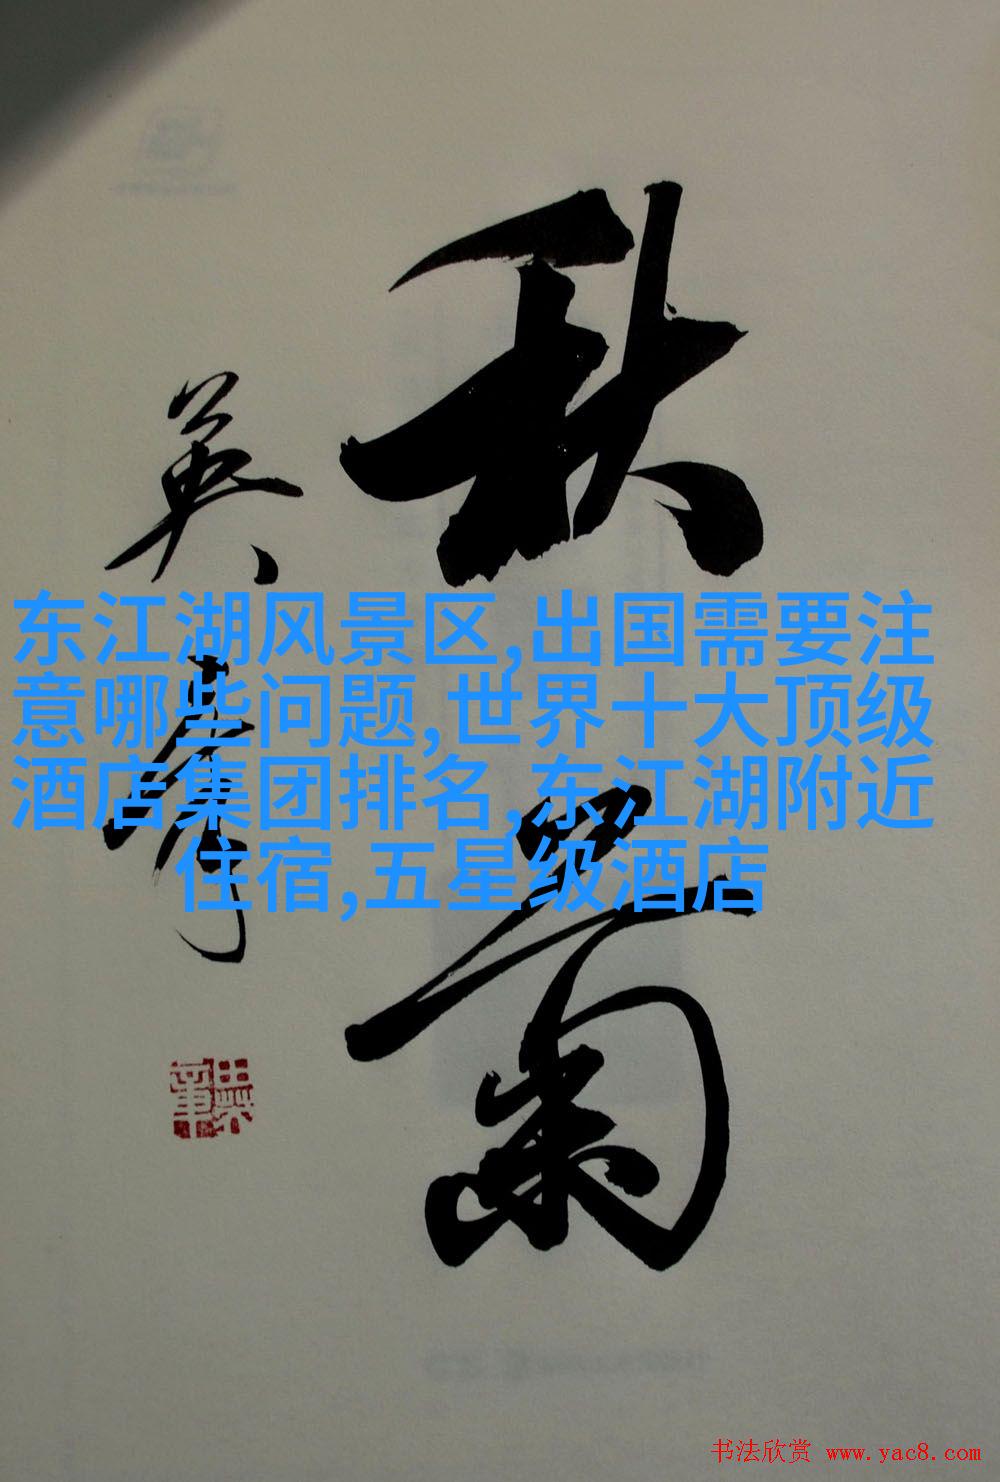 秋菊
英章
东江湖风景区,出国需要注
意哪些问题,世界十大顶级
酒店集团排名,东江湖附近
住宿,五星级酒店
书法欣赏 www.yac8.com